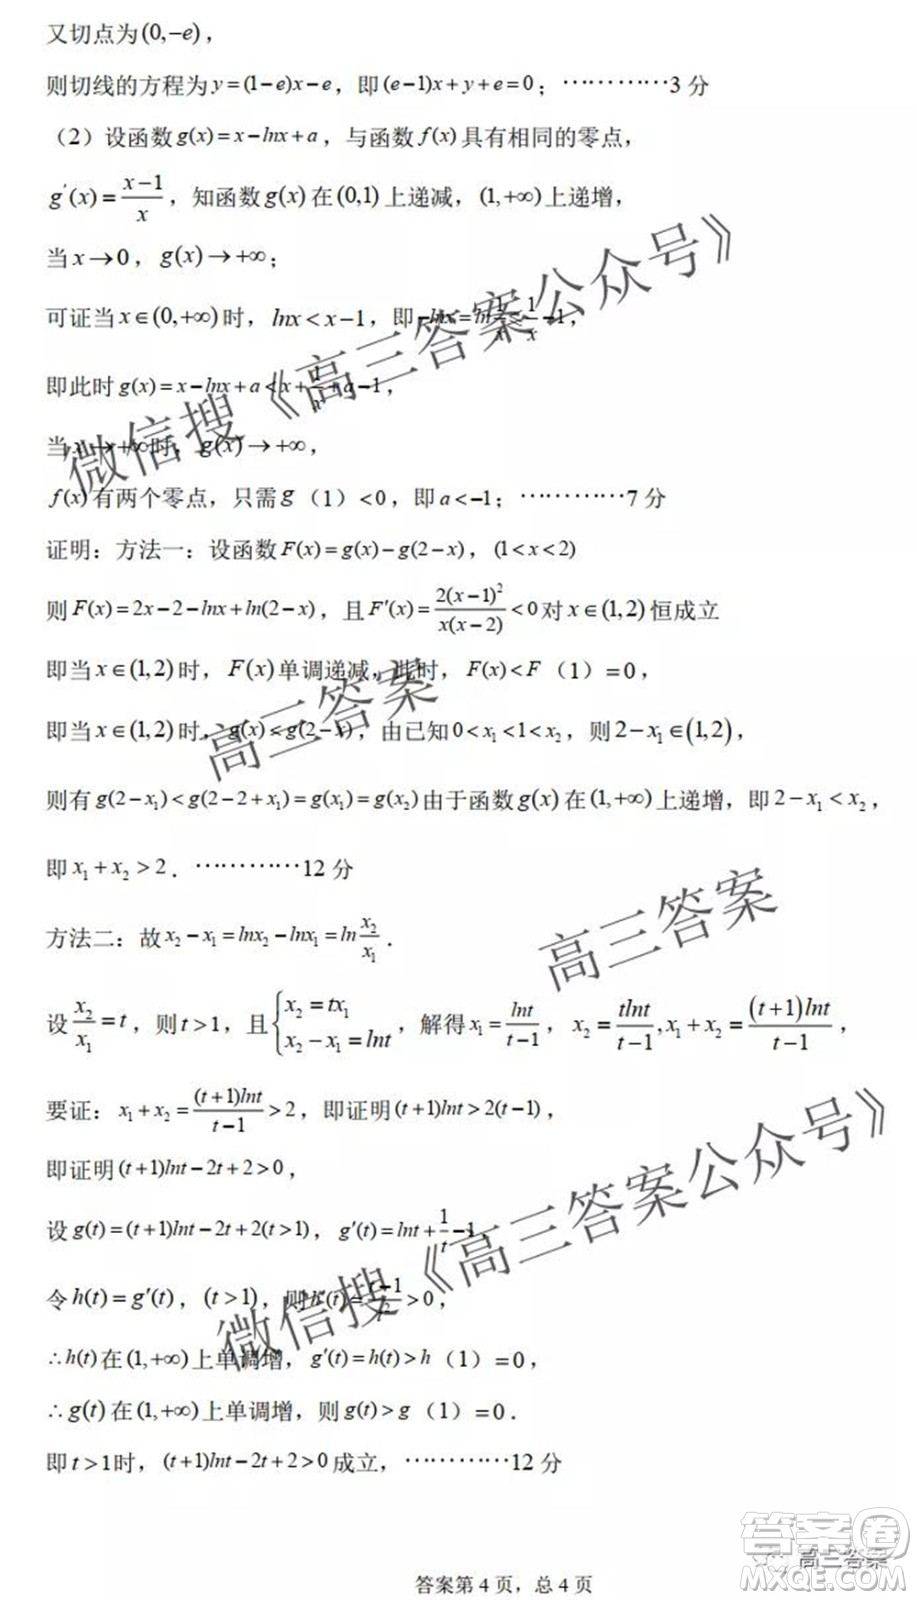 又切点为(0,−e)，
则切线的方程为y=(1−e)x−e，即(e−1)x+y+e=0；…………3分
（2）设函数g(x)=x−lnx+a，与函数f(x)具有相同的零点，
g'(x)=(x−1)/x，知函数g(x)在(0,1)上递减，(1,+∞)上递增，
当x→0，g(x)→+∞；
可证当x∈(0,+∞)时，lnx<x−1，即−lnx=ln1/x<1/x−1，
即此时g(x)=x−lnx+a<x+1/x+a−1，
当x→+∞时，g(x)→+∞，
f(x)有两个零点，只需g（1）<0，即a<−1；…………7分
证明：方法一：设函数F(x)=g(x)−g(2−x)，(1<x<2)
则F(x)=2x−2−lnx+ln(2−x)，且F′(x)=2(x−1)²/x(x−2)<0对x∈(1,2)恒成立
即当x∈(1,2)时，F(x)单调递减，此时，F(x)<F（1）=0，
即当x∈(1,2)时，g(x)<g(2−x)，由已知0<x₁<1<x₂，则2−x₁∈(1,2)，
则有g(2−x₁)<g(2−2+x₁)=g(x₁)=g(x₂)由于函数g(x)在(1,+∞)上递增，即2−x₁<x₂，
即x₁+x₂>2．…………12分
方法二：故x₂−x₁=lnx₂−lnx₁=ln x₂/x₁．
设x₂/x₁=t，则t>1，且{x₂=tx₁ x₂−x₁=lnt，解得x₁=lnt/(t−1)，x₂=tlnt/(t−1),x₁+x₂=(t+1)lnt/(t−1)，
要证：x₁+x₂=(t+1)lnt/(t−1)>2，即证明(t+1)lnt>2(t−1)，
即证明(t+1)lnt−2t+2>0，
设g(t)=(t+1)lnt−2t+2(t>1)，g′(t)=lnt+1/t−1，
令h(t)=g′(t)，(t>1)，则h′(t)=(t−1)/t²>0，
∴h(t)在(1,+∞)上单调增，g′(t)=h(t)>h（1）=0，
∴g(t)在(1,+∞)上单调增，则g(t)>g（1）=0．
即t>1时，(t+1)lnt−2t+2>0成立，…………12分
答案第4页，总4页
微信搜《高三答案公众号》
高三答案
高三答案
微信搜《高三答案公众号》
答案卷
高三答案
MXQE.COM